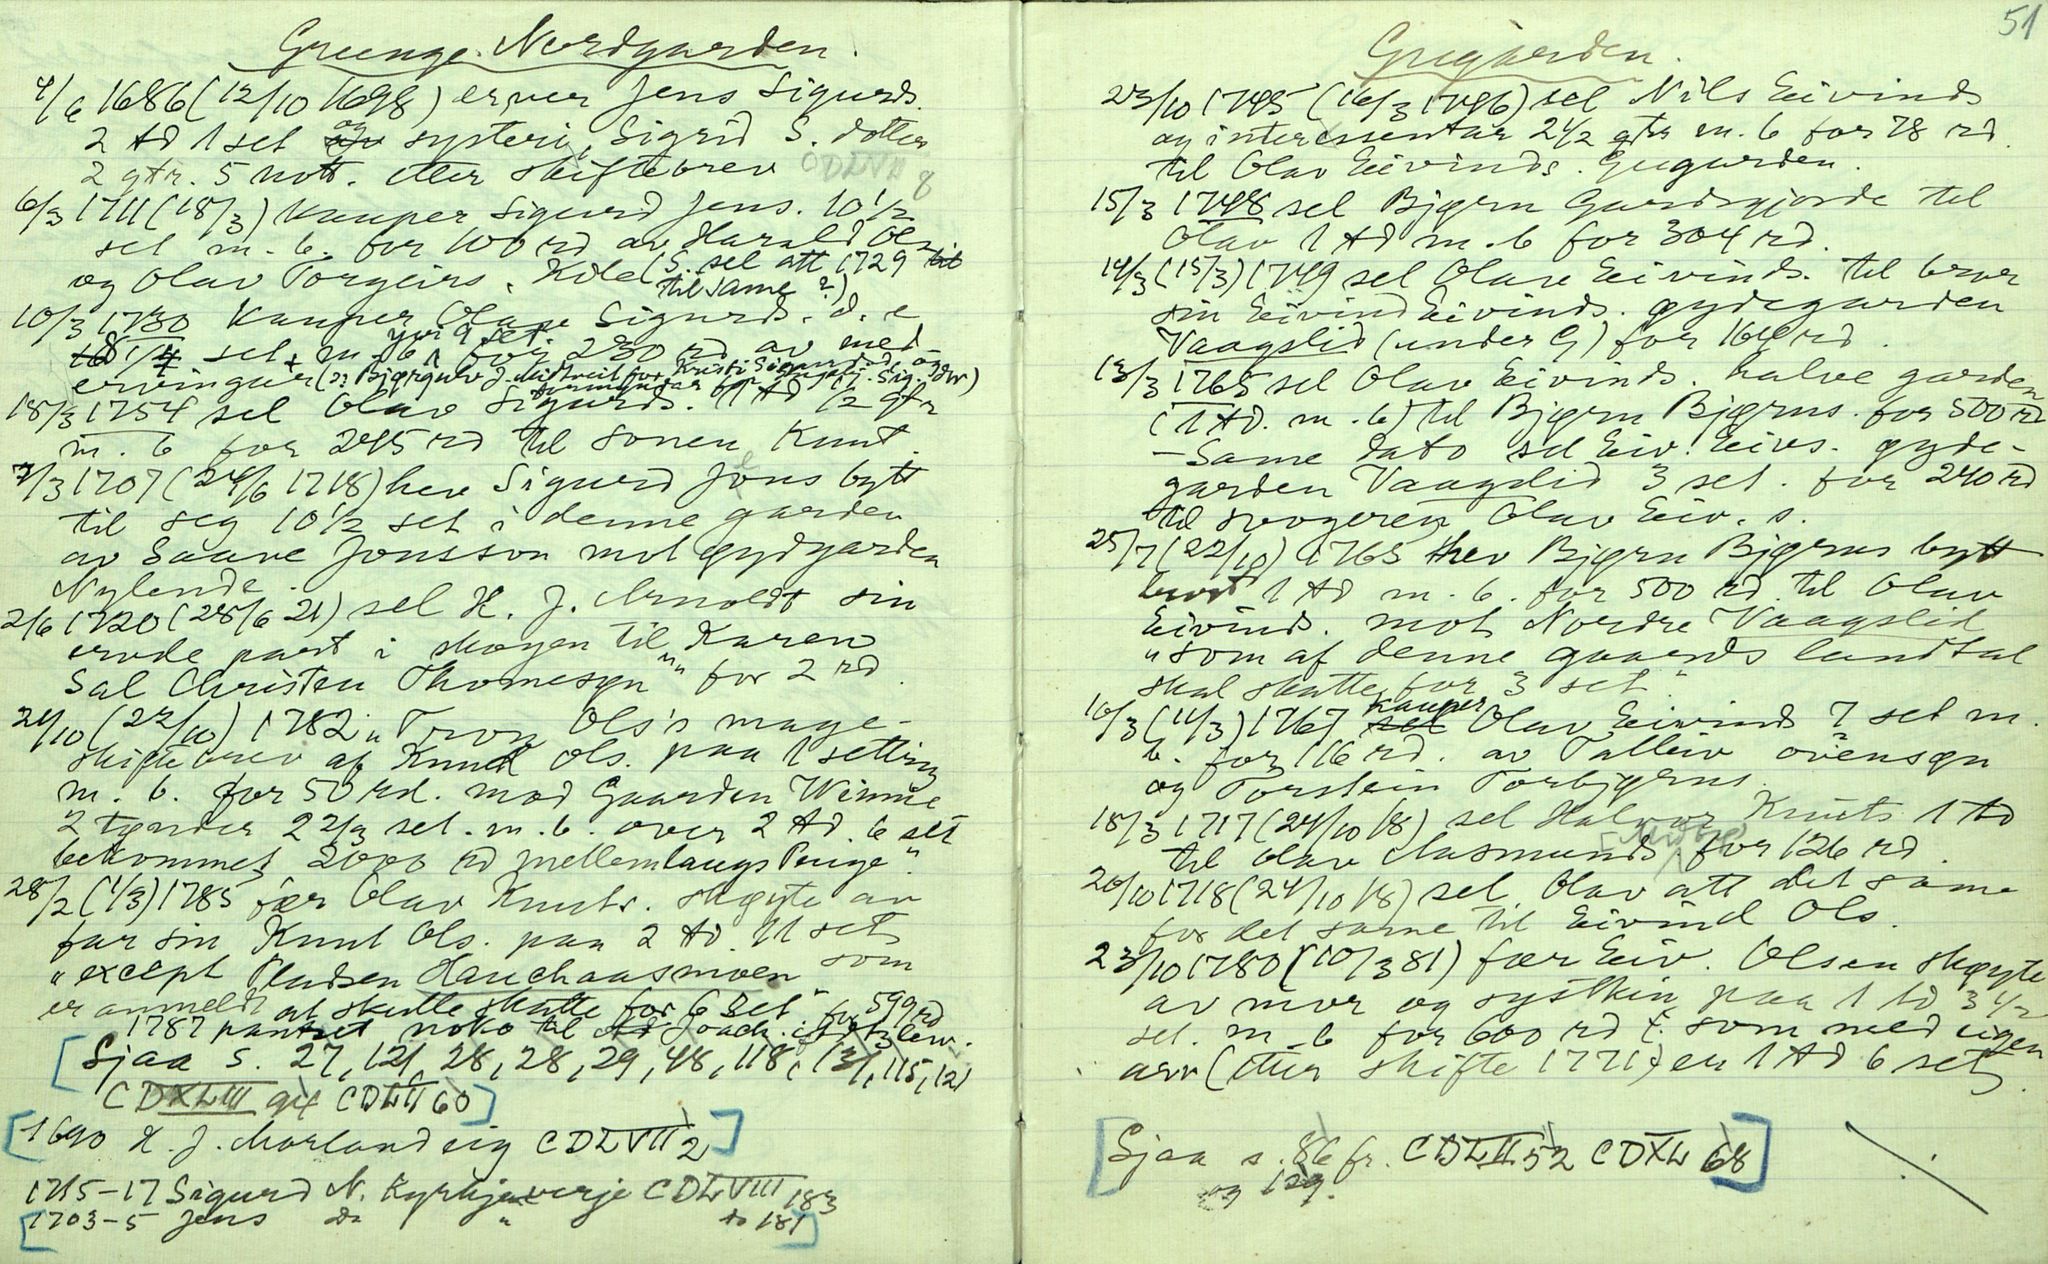 Grunge. Nordgarden.
4/6 1686 (12/10 1698) erver Jens Sigurds.
2 td 1 set og systeri, Sigrid S. dotter
2 qtr. 5 nott. etter skiftebrev CDLVII 8
6/3 1711 (18/3) kauper Sigurd Jens. 10 1/2
set m. b. for 100 rd av Harald Ols.
og Olav Torgeirs. Kile (S. sel att 1729
til same?)
10/3 1730 kauper Olav Sigurds. d. e
yvi 9 set.
set. m. b. for 230 rd av med-
ervingar
18/3 1754 sel Olav Sigurds. 1 td 1/2 qtr
m. b for 245 rd til sonen Knut.
7/3 1707 (24/6 1718) hev Sigurd Jens bytt
til seg 10 1/2 set i denne garden
av Saave Jonsson mot øydgarden
Nylende.
2/6 1720 (28/6 21) sel H. J. Arnoldt sin
ervde part i skogen til "Karen
Sal Christen Thomesøn" for 2 rd.
21/10 (22/10) 1782 "Tron Ols's mage-
skiftebrev af Knud Ols. paa 1 setting
m. b. for 50 rd. mod Gaarden Winme
2 tønder 2 2/3 set. m. b. over 2 td. 6 set
bekommet 2000 rd mellemlaugs Penge".
28/2 (1/3) 1785 fær Olav Knuts. skøyte av
far sin Knut Ols. paa 2 td. 11 set
"except Pladsen Hauchaasmoen som
er anmeldt at skulle skatte for 6 Set" for 599 rd
1787 pantset noko til Joach.
[Sjaa s. 27, 121, 28, 28, 29, 48, 118, 131, 115, 121
CDXLIII 94 CDLII 60]
[1690 H. J. Morland eig CDLVII 2]
1715-17 Sigurd N. Kyrkjeverje CDLVIII 183
[1703-5 Jens do " do 181]
51
Grugarden.
23/10 1745 (16/3 1746) sel Nils Eivinds
og interessentar 2 1/2 qtr m. b for 78 rd.
til Olav Eivinds. Grugarden.
15/3 1748 sel Bjørn Gardsgjorde til
Olav 1 td m. b for 304 rd.
14/3 (15/3) 1749 sel Olav Eivinds. til bror
sin Eivind Eivinds. øydegarden
Vaagslid (under G) for 164 rd.
13/3 1765 sel Olav Eivinds. halve garden
(1 td. m. b) til Bjørn Bjørns. for 500 rd
- Same dato sel Eiv. Eivs. øyde-
garden Vaagslid 3 set. for 240 rd
til svogeren Olav Eiv. s.
25/7 (22/10) 1765 hev Bjørn Bjørns bytt
burt 1 td m. b. for 500 rd. til Olav
Eivinds. mot Nordre Vaagslid
"som af denne gaards landtal
skal skatte for 3 set".
10/3 (11/3) 1767 kauper Olav Eivinds 7 set m.
b. for 116 rd. av Talleiv övensøn
og Torstein Torbjørns.
18/3 1717 (24/10 18) sel Halvor Knuts 1 td
til Olav Aasmunds for 126 rd.
20/10 1718 (24/10 18) sel Olav att det same
for det same til Eivind Ols.
23/10 1780 (10/3 81) fær Eiv. Olsen skøyte
av mor og systkin paa 1 td 3 1/2
set. m. b for 600 rd som med eigen
arv (etter skifte 1771) er 1 td 6 set.
[Sjaa s. 86 fr. CDLII 52 CDXL 68]
og 129.